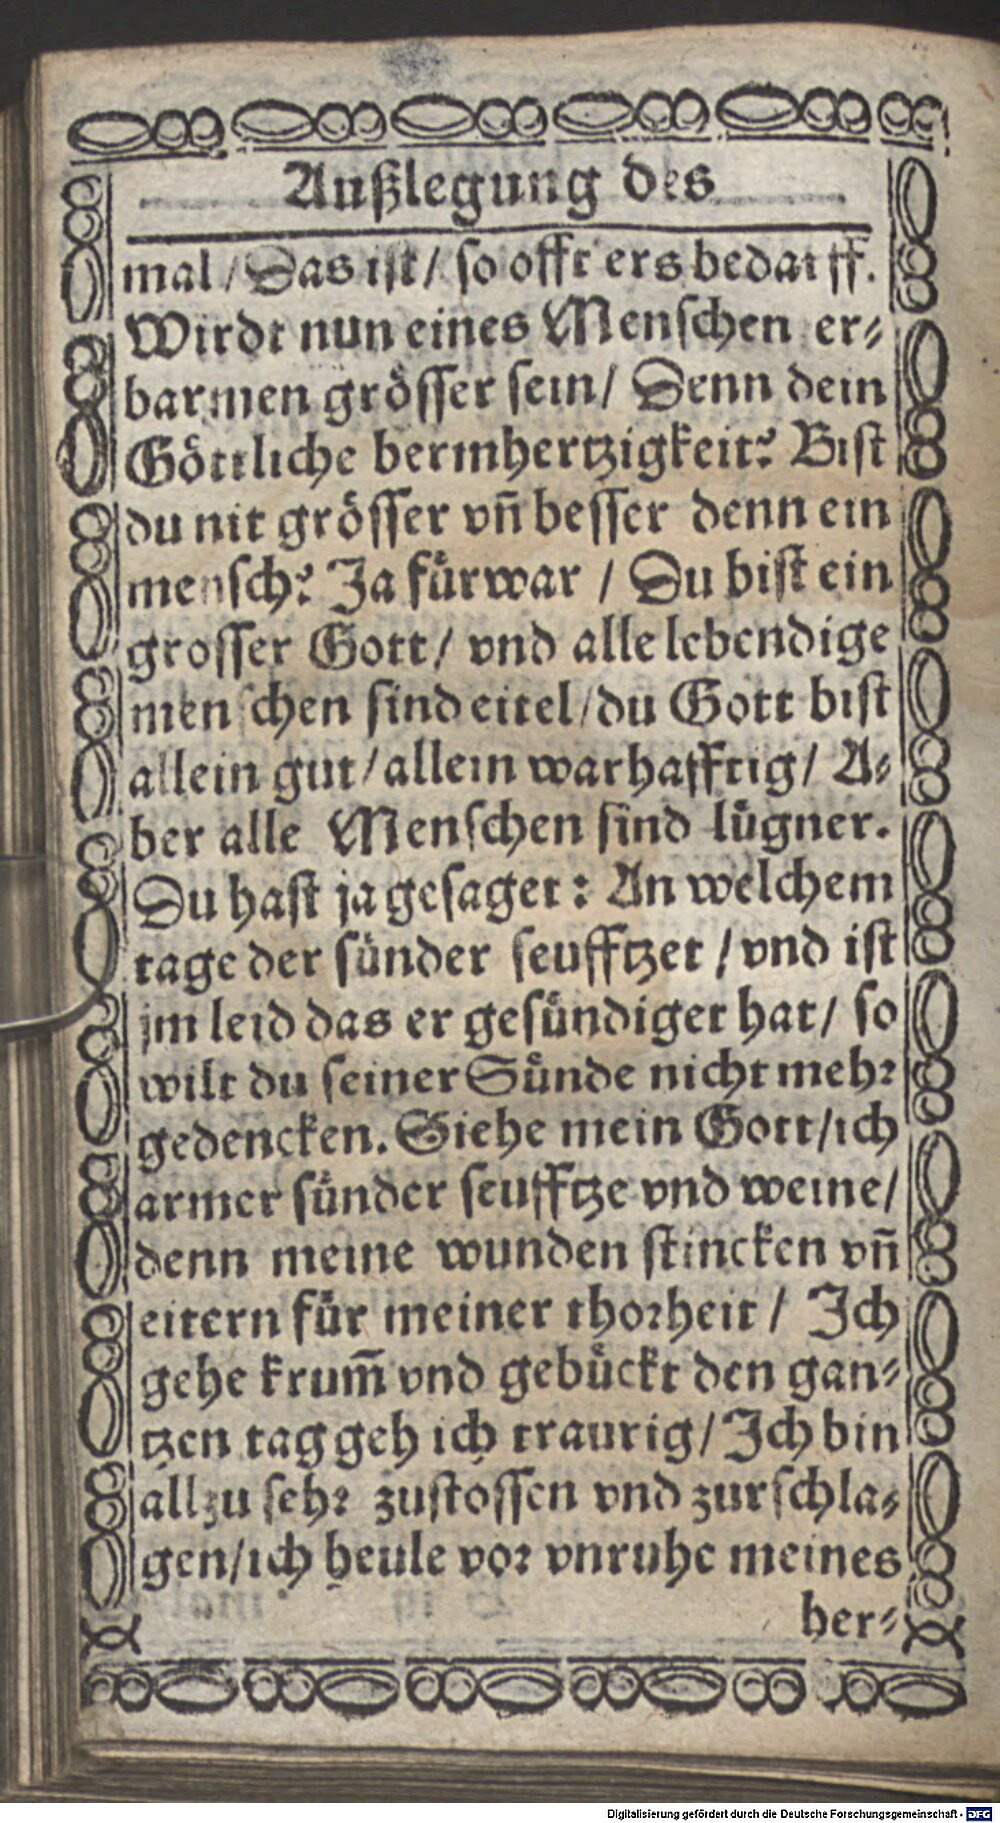 Außlegung des
mal / Das ist / so offt ers bedarff.
Wirdt nun eines Menschen er⸗
barmen grösser sein / Denn dein
Göttliche bermhertzigkeit? Bist
du nit grösser vn̄ besser denn ein
mensch? Ja fürwar / Du bist ein
grosser Gott / vnd alle lebendige
menschen sind eitel / du Gott bist
allein gut / allein warhafftig / A⸗
ber alle Menschen sind lügner.
Du hast ja gesaget : An welchem
tage der sünder seufftzet / vnd ist
jm leid das er gesündiget hat / so
wilt du seiner Sünde nicht mehr
gedencken. Siehe mein Gott / ich
armer sünder seufftze vnd weine /
denn meine wunden stincken vn̄
eitern für meiner thorheit / Ich
gehe krum̄ vnd gebückt den gan⸗
tzen tag geh ich traurig / Ich bin
allzu sehr zustossen vnd zurschla⸗
gen / ich heule vor vnruhe meines
her⸗
Digitalisierung gefördert durch die Deutsche Forschungsgemeinschaft - DFG